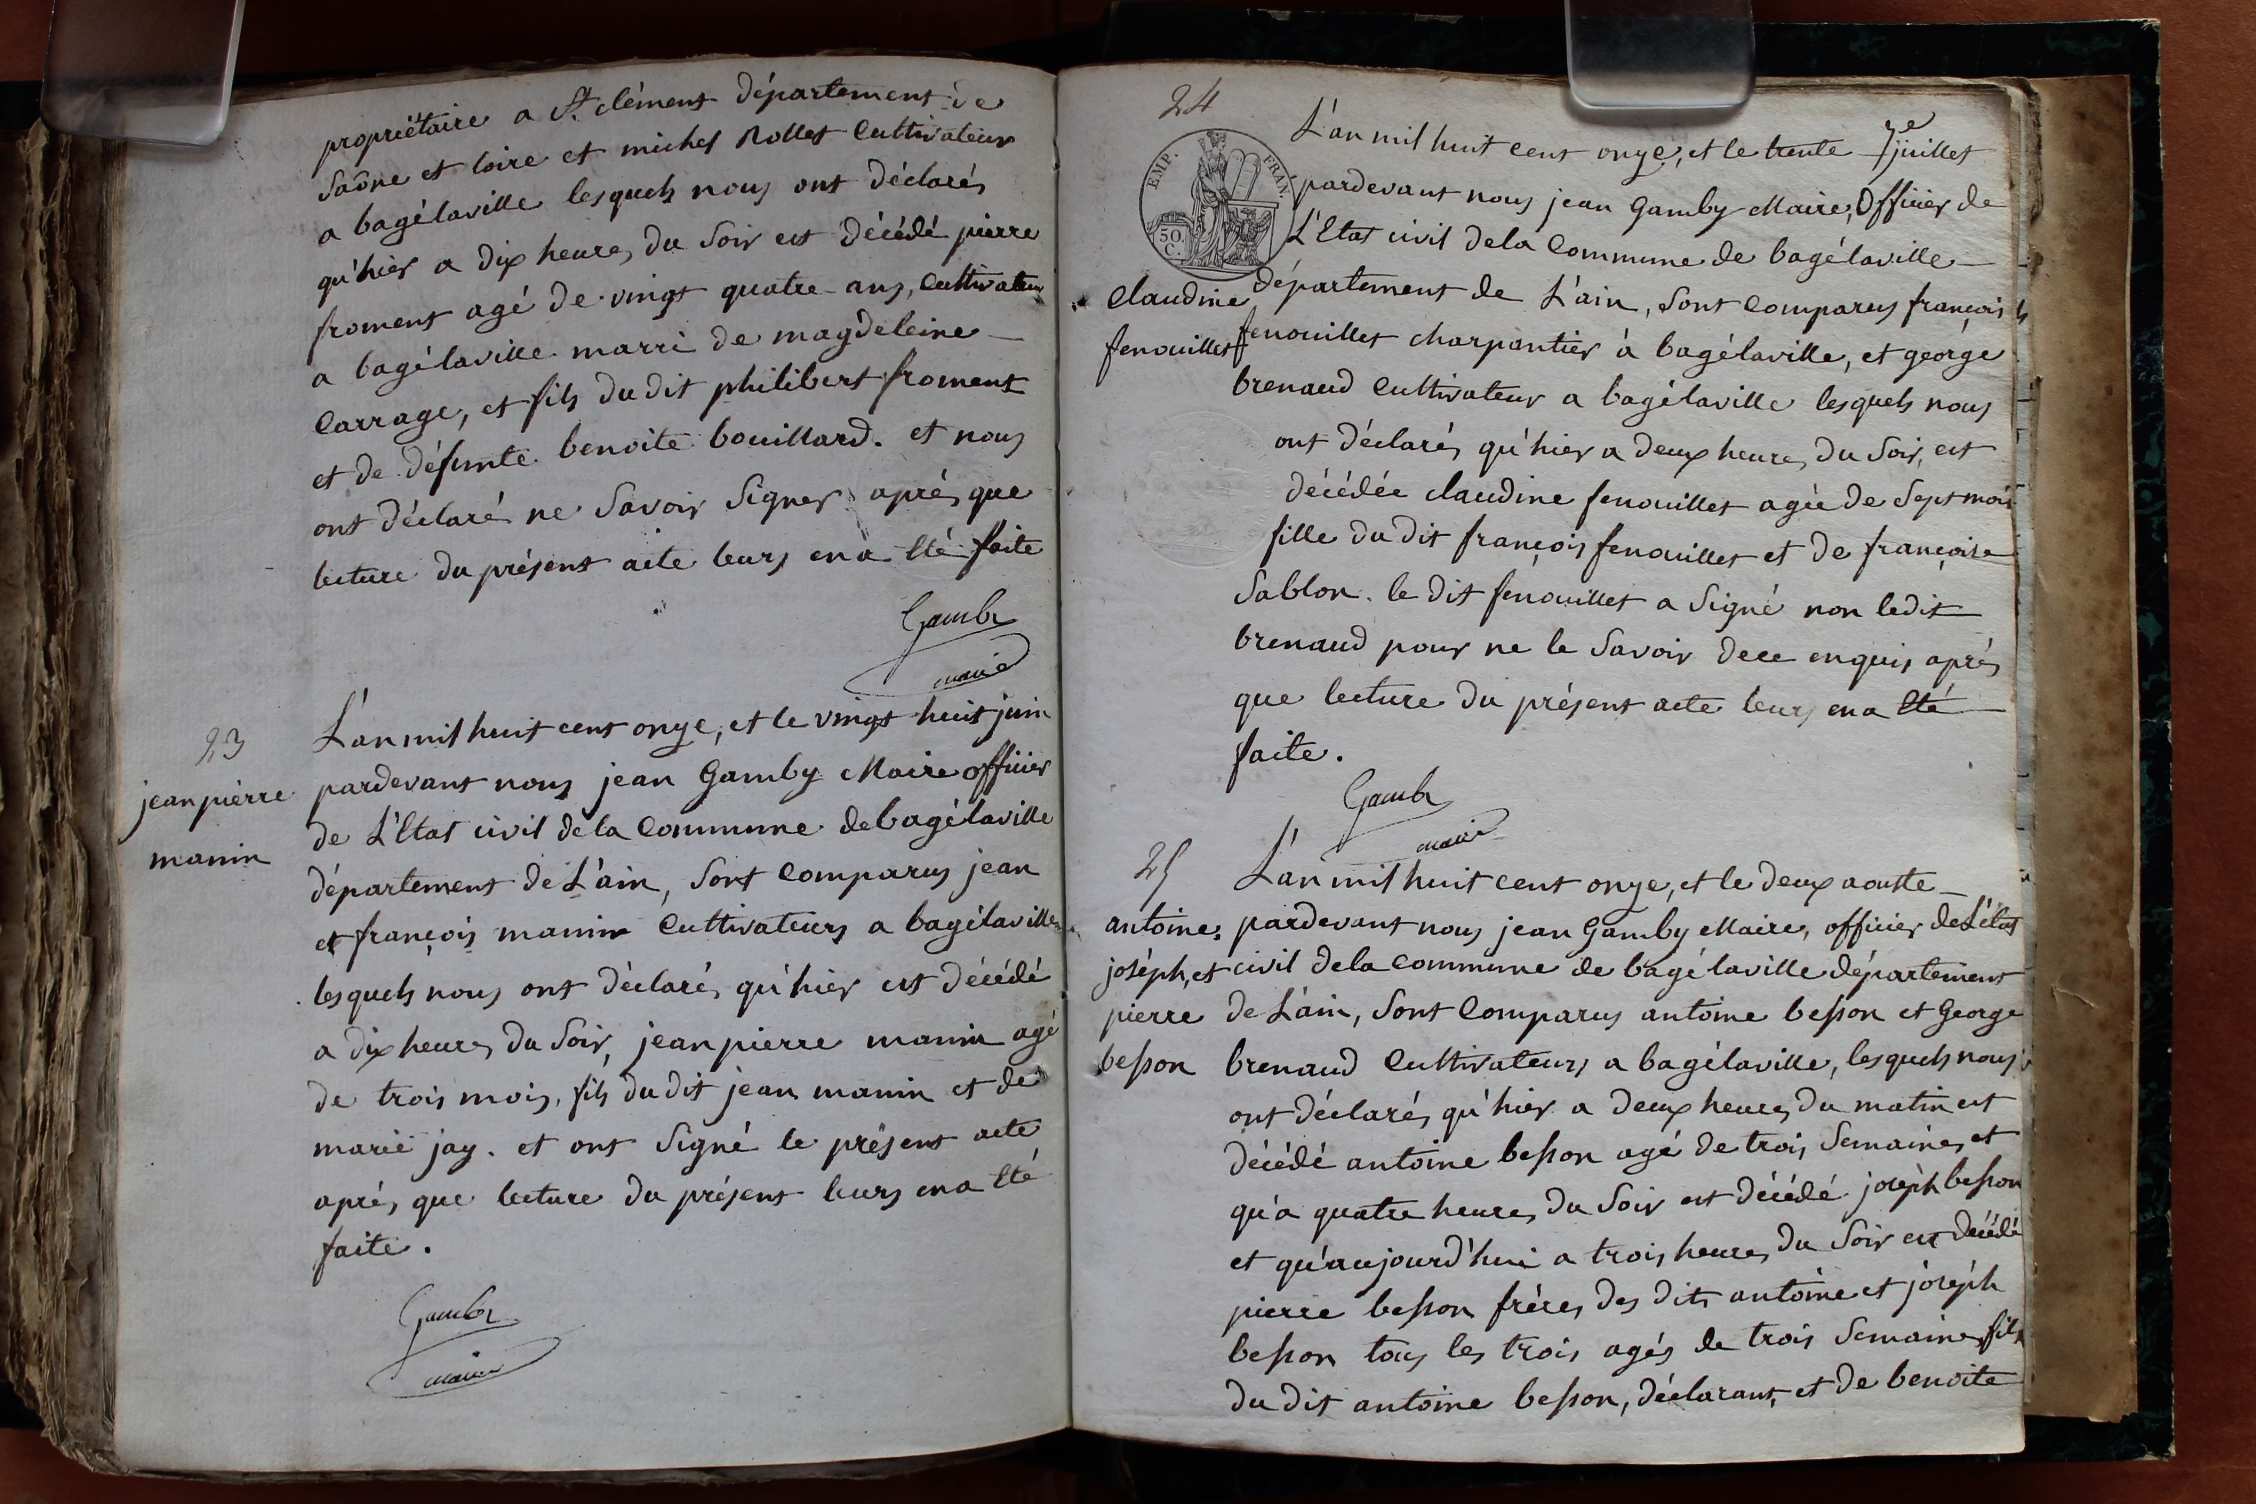 propriétaire a St. clément département de
Saône et loire et michel Rollet Cultivateur
a bagélaville lesquels nous ont déclarés
qu'hier a dix heures du Soir est décédé pierre
froment agé de vingt quatre ans, Cultivateur
a bagélaville marri de magdeleine
Carrage, et fils du dit philibert froment
et de défunte benoite bouillard. et nous
ont déclaré ne Savoir Signer après que
lecture du présent acte leurs en a Eté faite
Gamby
maire
23
jean pierre
manin
L'an mil huit cent onze, et le vingt huit juin
pardevant nous jean Gamby Maire officier
de L'Etat civil de la Commune de bagélaville
département de L'ain, Sont Comparus jean
et françois manin Cultivateurs a bagélaville
lesquels nous ont déclarés qu'hier est décédé
a dix heures du Soir, jean pierre manin agé
de trois mois, fils du dit jean manin et de
marie jay. et ont Signé le présent acte
après que lecture du présent leurs en a Eté
faite.
Gamby
maire
24
EMP. FRAN.
50.
C.
Claudine
fenouillet
L'an mil huit cent onze, et le trente 7e juillet
pardevant nous jean Gamby Maire, Officier de
L'Etat civil dela Commune de bagélaville
département de L'ain, Sont Comparus françois
fenouillet charpantier à bagélaville, et george
brenaud Cultivateur a bagélaville lesquels nous
ont déclarés qu'hier a deux heures du Soir, est
décédée claudine fenouillet agée de Sept mois
fille du dit françois fenouillet et de françoise
Sablon. le dit fenouillet a Signé non ledit
brenaud pour ne le Savoir dece enquis après
que lecture du présent acte leurs en a Eté
faite.
Gamby
maire
25
antoine,
joséph, et
pierre
besson
L'an mil huit cent onze, et le deux aoustte
pardevant nous jean Gamby Maire, officier de L'état
civil dela Commune de bagélaville département
de L'ain, Sont Comparus antoine besson et George
brenaud Cultivateurs a bagélaville, lesquels nous
ont déclarés qu'hier a deux heures du matin est
décédé antoine besson agé de trois Semaines et
qu'a quatre heures du Soir est décédé joséph besson
et qu'aujourd'hui a trois heures du Soir est décédé
pierre besson frères des dits antoine et joséph
besson tous les trois agés de trois Semaines fils
du dit antoine besson, déclarant, et de benoite